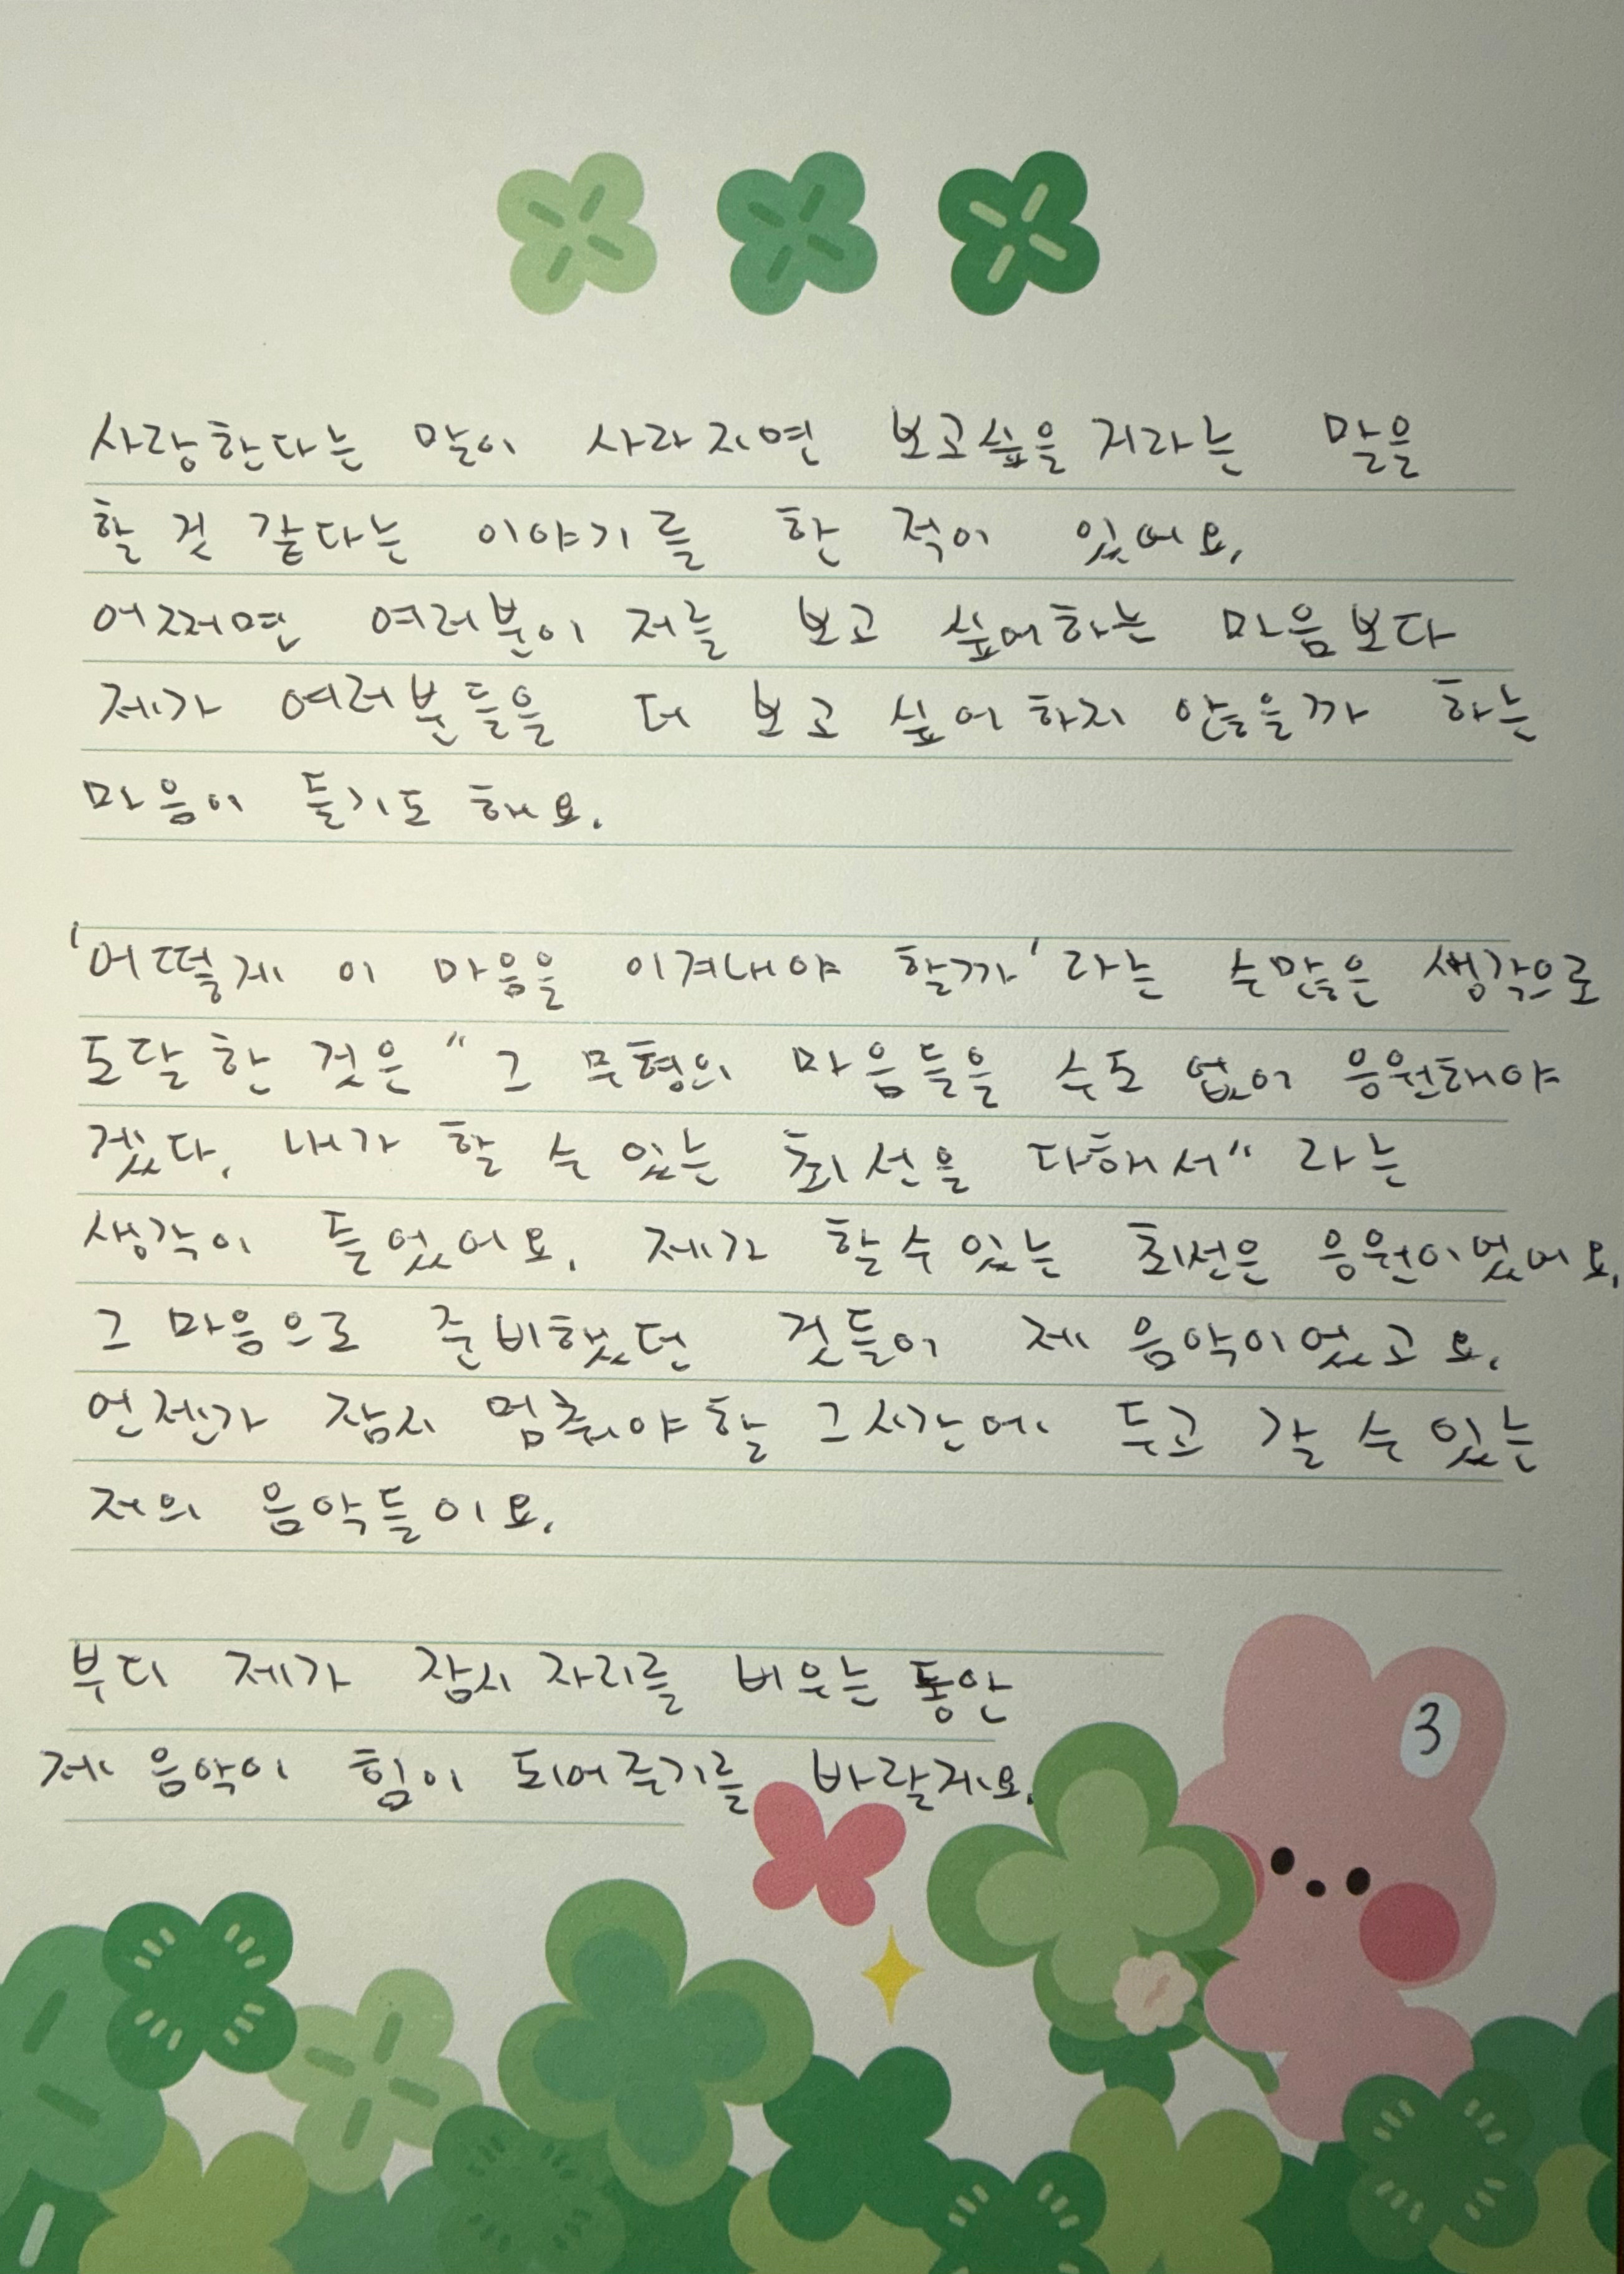 사랑한다는 말이 사라지면 보고싶을거라는 말을
할 것 같다는 이야기를 한 적이 있어요.
어쩌면 여러분이 저를 보고 싶어하는 마음보다
제가 여러분들을 더 보고 싶어하지 않을까 하는
마음이 들기도 해요.
'어떻게 이 마음을 이겨내야 할까'라는 수많은 생각으로
도달한 것은 "그 무형의 마음들을 수도 없이 응원해야
겠다. 내가 할 수 있는 최선을 다해서"라는
생각이 들었어요. 제가 할수있는 최선은 응원이었어요.
그 마음으로 준비했던 것들이 제 음악이었고요.
언젠가 잠시 멈춰야할 그시간에 두고 갈 수 있는
저의 음악들이요.
부디 제가 잠시 자리를 비우는 동안
제 음악이 힘이 되어주기를 바랄게요.
3